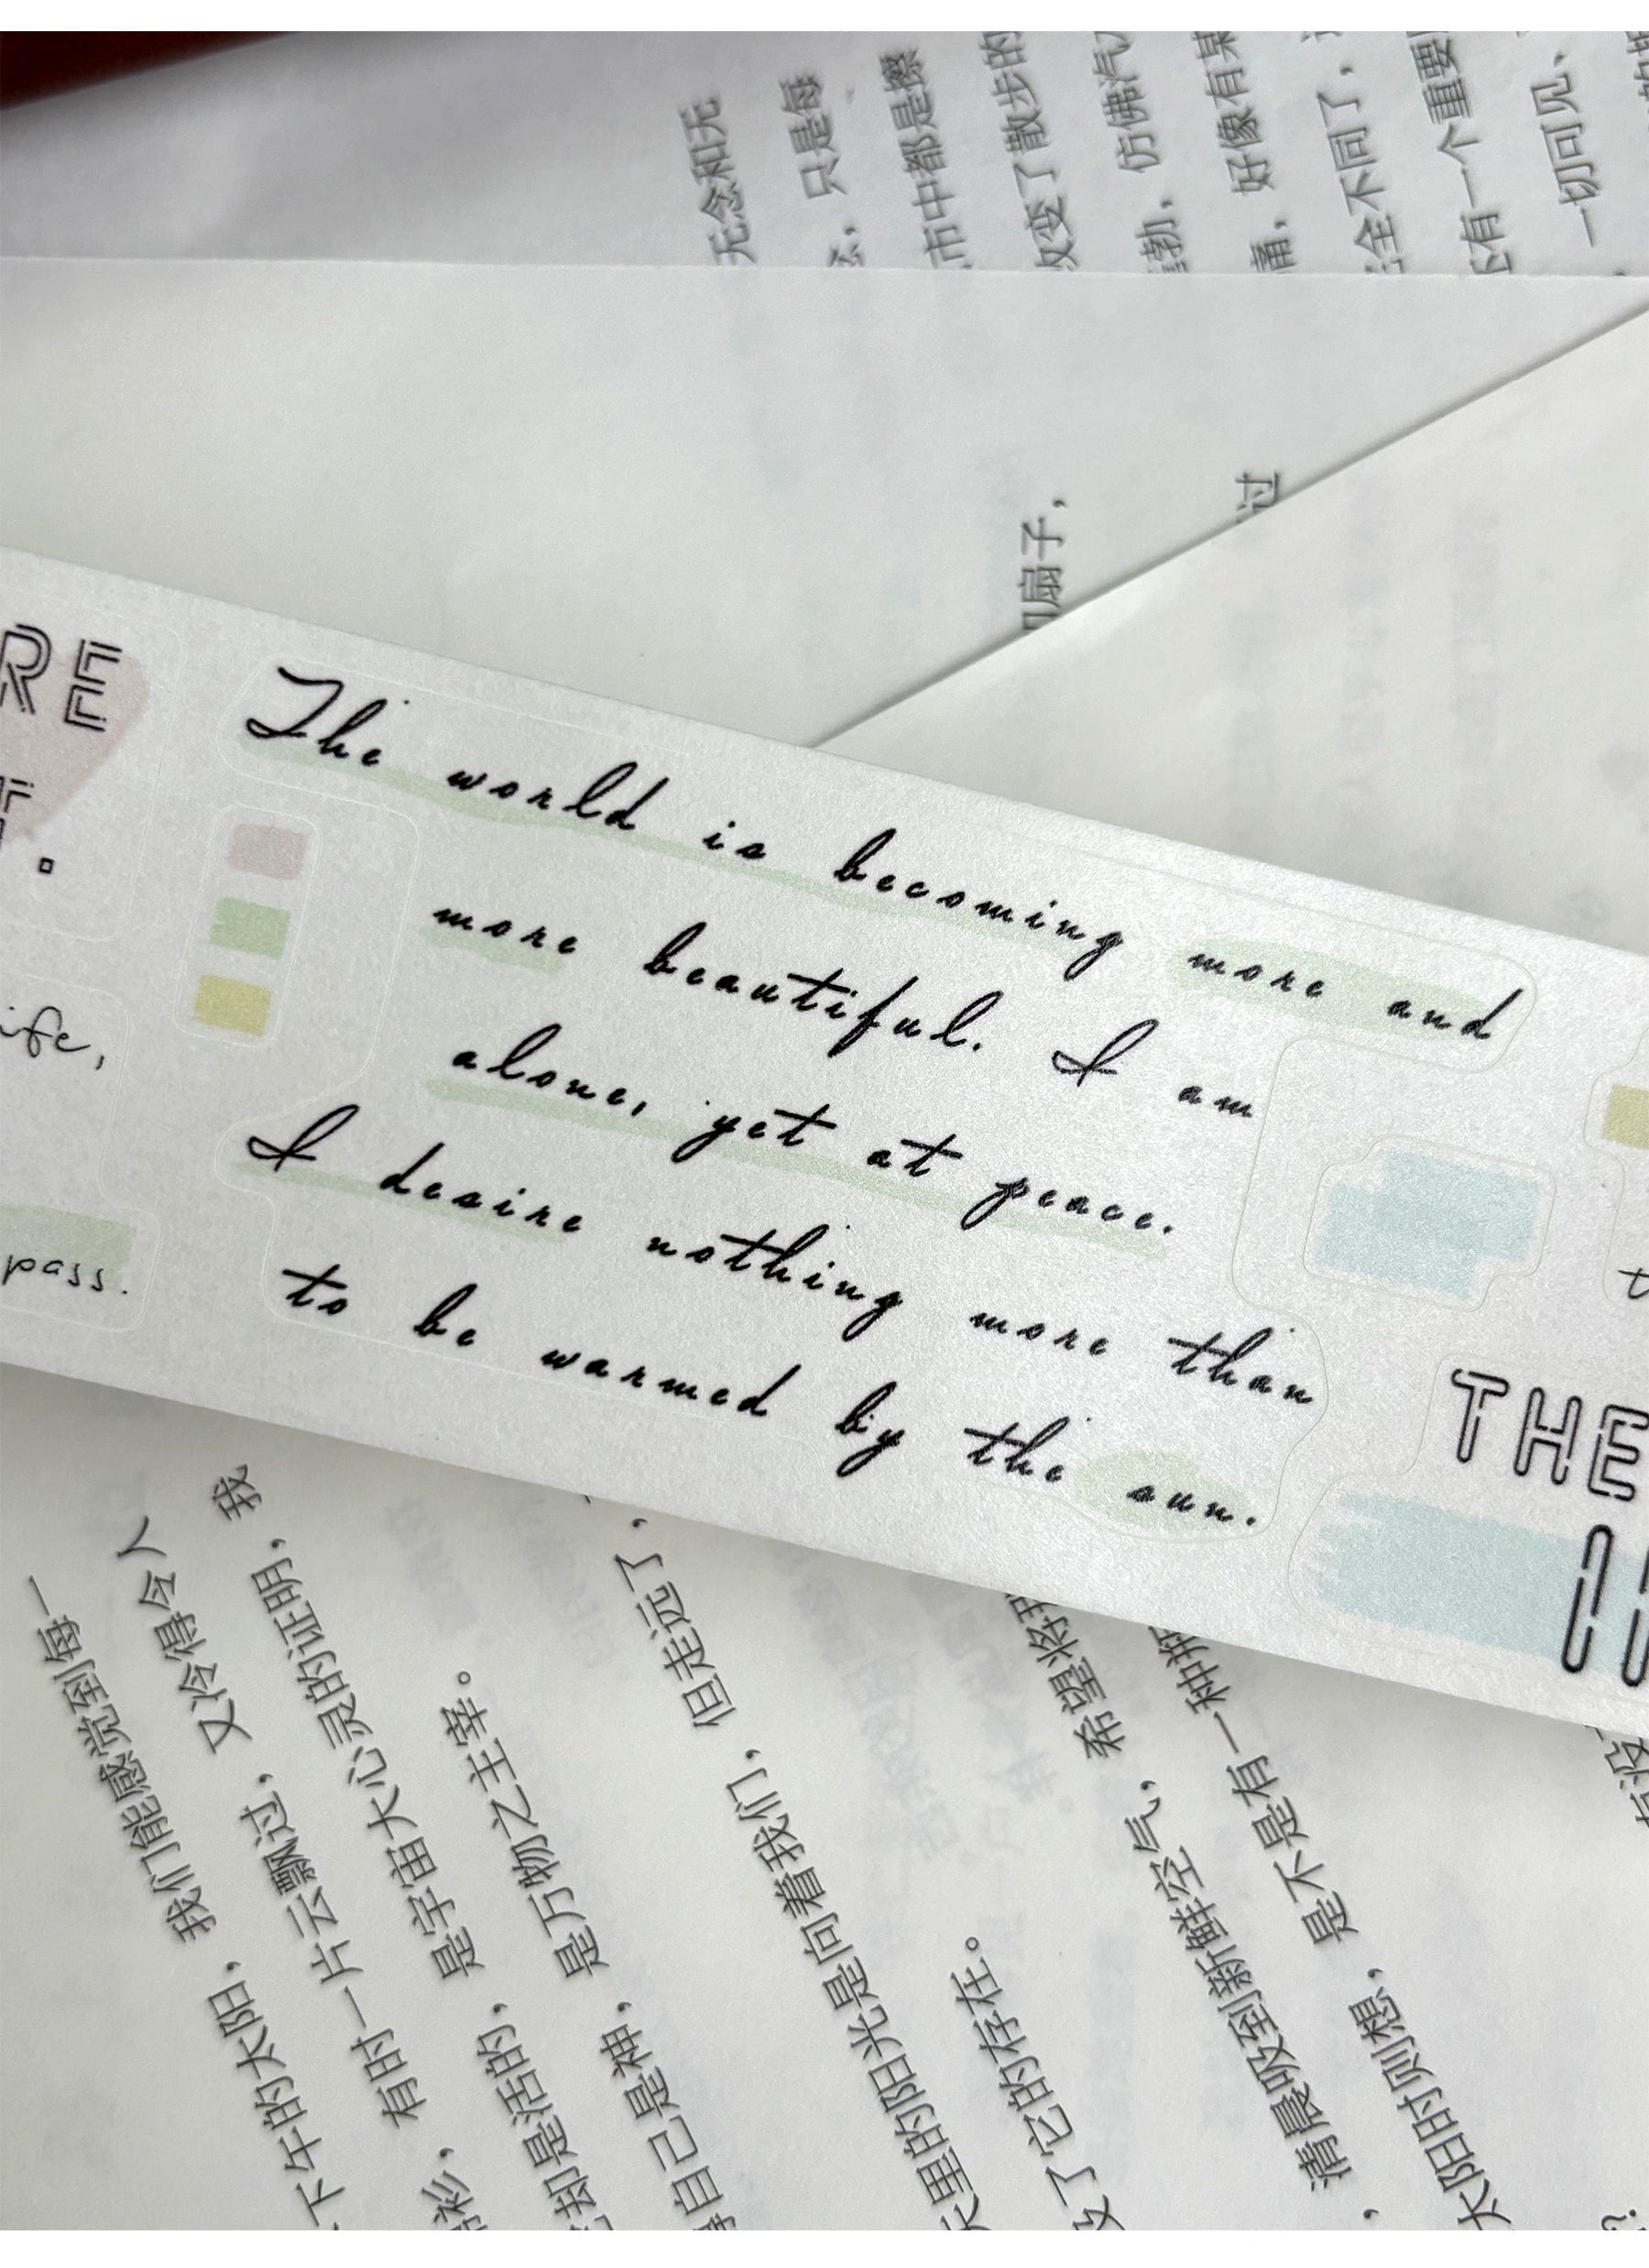 The world is becoming more and
more beautiful. I am
alone, yet at peace.
I desire nothing more than
to be warmed by the sun.
RE
ife,
pass.
THE
无念和无
只是每
市中都是擦
改变了散步的
仿佛汽
痛，好像有某
全不同了，
有一个重要
一切可见、
扇子，
过
下午的太阳，我们能感觉到每一
有时一片云飘过，又冷得令人
却是活的，是宇宙大心灵的证明，我
自己是神，是万物之主宰。
天里的阳光是向着我们，但走远了，
没了它的存在。
清晨吸到新鲜空气，希望将
太阳时则想，是不是有一种